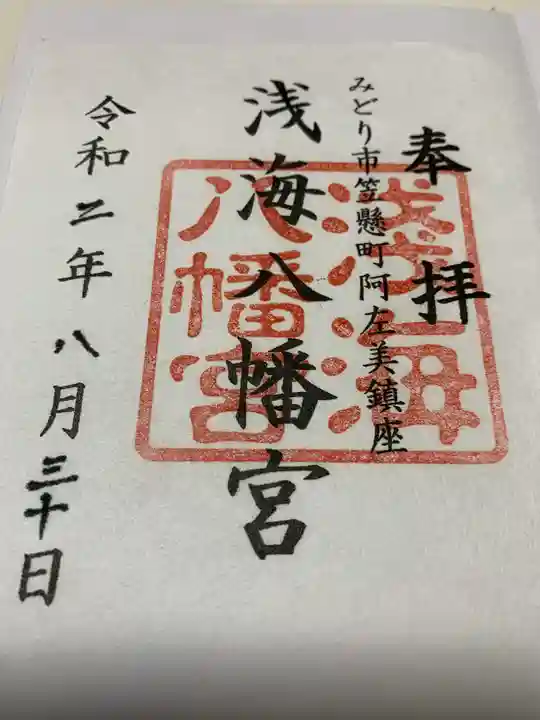 奉拝
みどり市笠懸町阿左美鎮座
浅海八幡宮
淺海
八幡宮
令和二年八月三十日